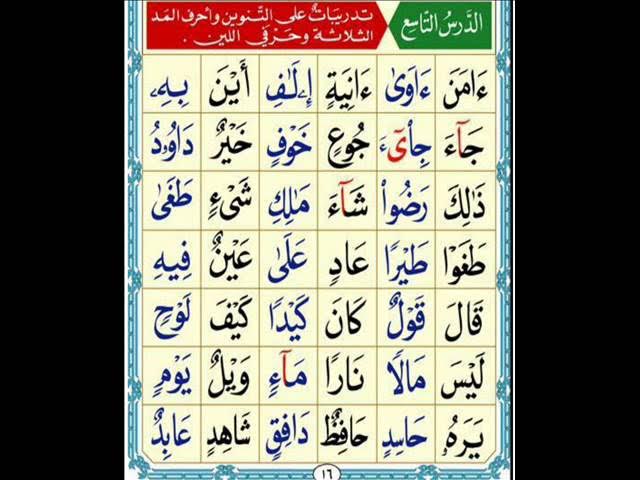 الدَّرسُ التَّاسِع
تدريبَاتٌ على التَّنوين وأحرف المَد
الثلاثة وحَرْفَي اللين .
ءَامَنَ ءَاوَىٰ ءَانِيَةٍ إِۦلَٰفِ أَيْنَ بِهِۦ
جَآءَ جِاْىٓءَ جُوعٍ خَوْفٍ خَيْرٌ دَاوُۥدُ
ذَٰلِكَ رَضُواْ شَآءَ مَٰلِكِ شَىْءٍ طَغَىٰ
طَغَوْاْ طَيْرًا عَادٍ عَلَىٰ عَيْنٌ فِيهِ
قَالَ قَوْلٌ كَانَ كَيْدًا كَيْفَ لَوْحٍ
لَيْسَ مَالًا نَارًا مَآءٍ وَيْلٌ يَوْمٍ
يَرَهُۥ حَاسِدٍ حَافِظٌ دَافِقٍ شَاهِدٍ عَابِدٌ
١٦